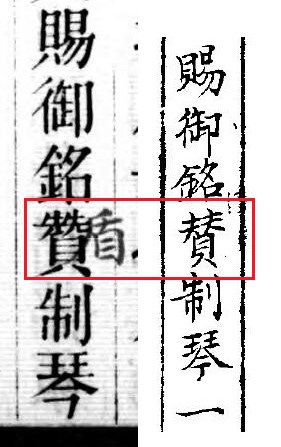 賜御銘贊制琴
盾
賜御銘賛制琴一